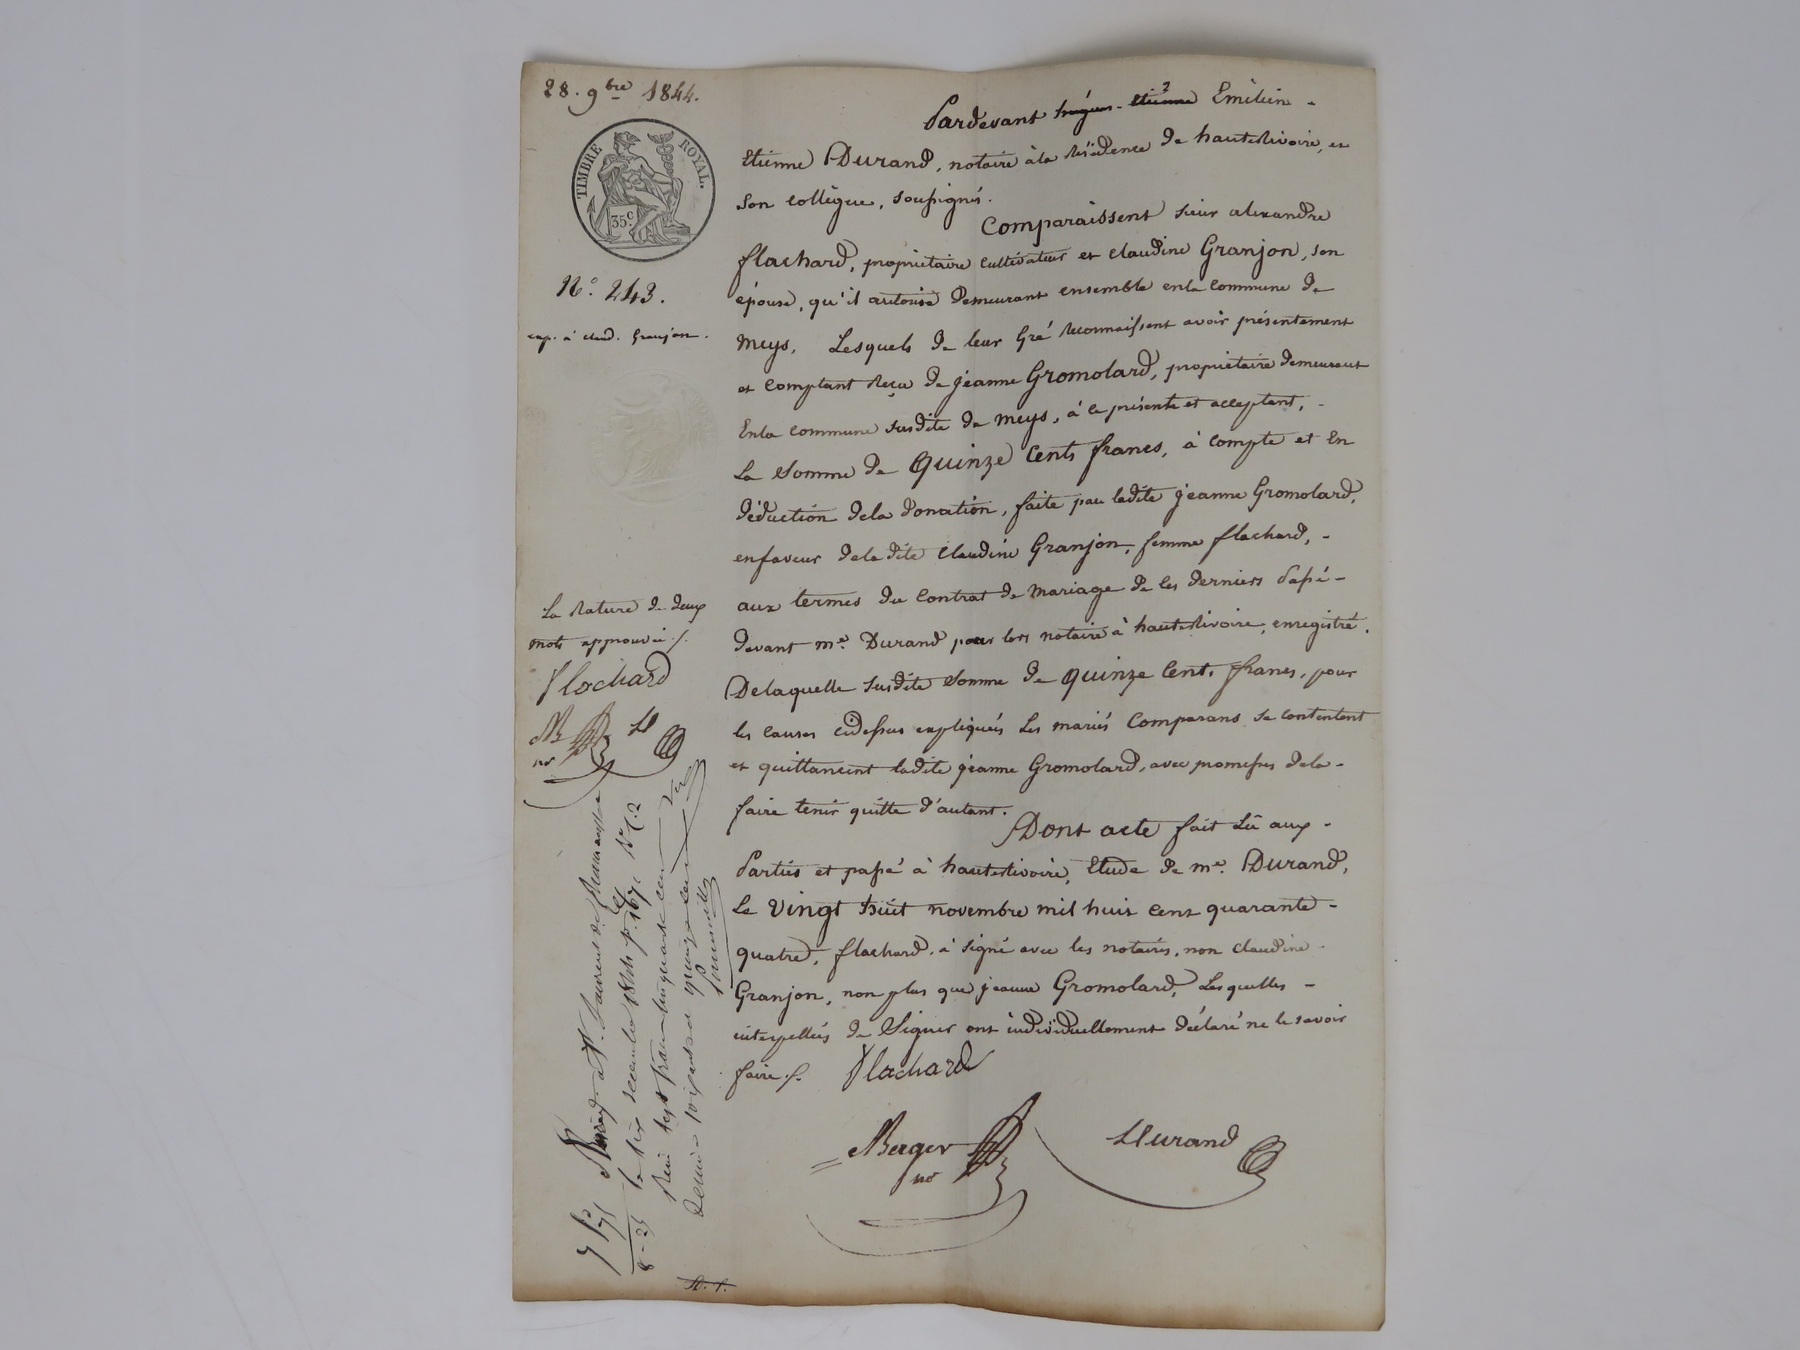 28. 9bre 1844.
TIMBRE ROYAL.
35 c.
N.° 243.
exp. à claud. Granjon.
Pardevant hugues-etienne Emilien -
Etienne Durand, notaire à la Résidence de hauterivoire, et
son collègue, soussignés.
Comparaissent sieur alexandre
flachard, propriétaire cultivateur et claudine Granjon, son
épouse, qu'il autorise demeurant ensemble enla commune de
meys, Lesquels de leur Gré reconnaissent avoir présentement
et comptant Reçu de jeanne Gromolard, propriétaire demeurant
Enla commune susdite de meys, à ce présente et acceptant, -
La somme de quinze cents francs, à compte et En
déduction dela donation, faite par ladite jeanne Gromolard,
enfaveur dela dite claudine Granjon, femme flachard, -
aux termes du contrat de mariage de ces derniers passé -
devant me. Durand pour lors notaire à hauterivoire, enregistré.
Delaquelle susdite somme de quinze cents francs, pour
les causes cidessus expliquées Les mariés comparans se contentent
et quittancent ladite jeanne Gromolard, avec promesses dela -
faire tenir quitte d'autant.
Dont acte fait Lu aux -
Parties et passé à hauterivoire, Etude de me. Durand,
Le vingt huit novembre mil huit cent quarante -
quatre, flachard, à signé avec les notaires, non claudine -
Granjon, non plus que jeanne Gromolard, Lesquelles -
interpellées de signer ont individuellement déclaré ne le savoir
faire./.
Flachard
Berger
nre
Durand
La Rature de deux
mots approuvée ./.
Flachard
B
nre
D
le six décembre 1844 f. 167 c
Reçu sept francs cinquante cent
7 f 75
8 - 25